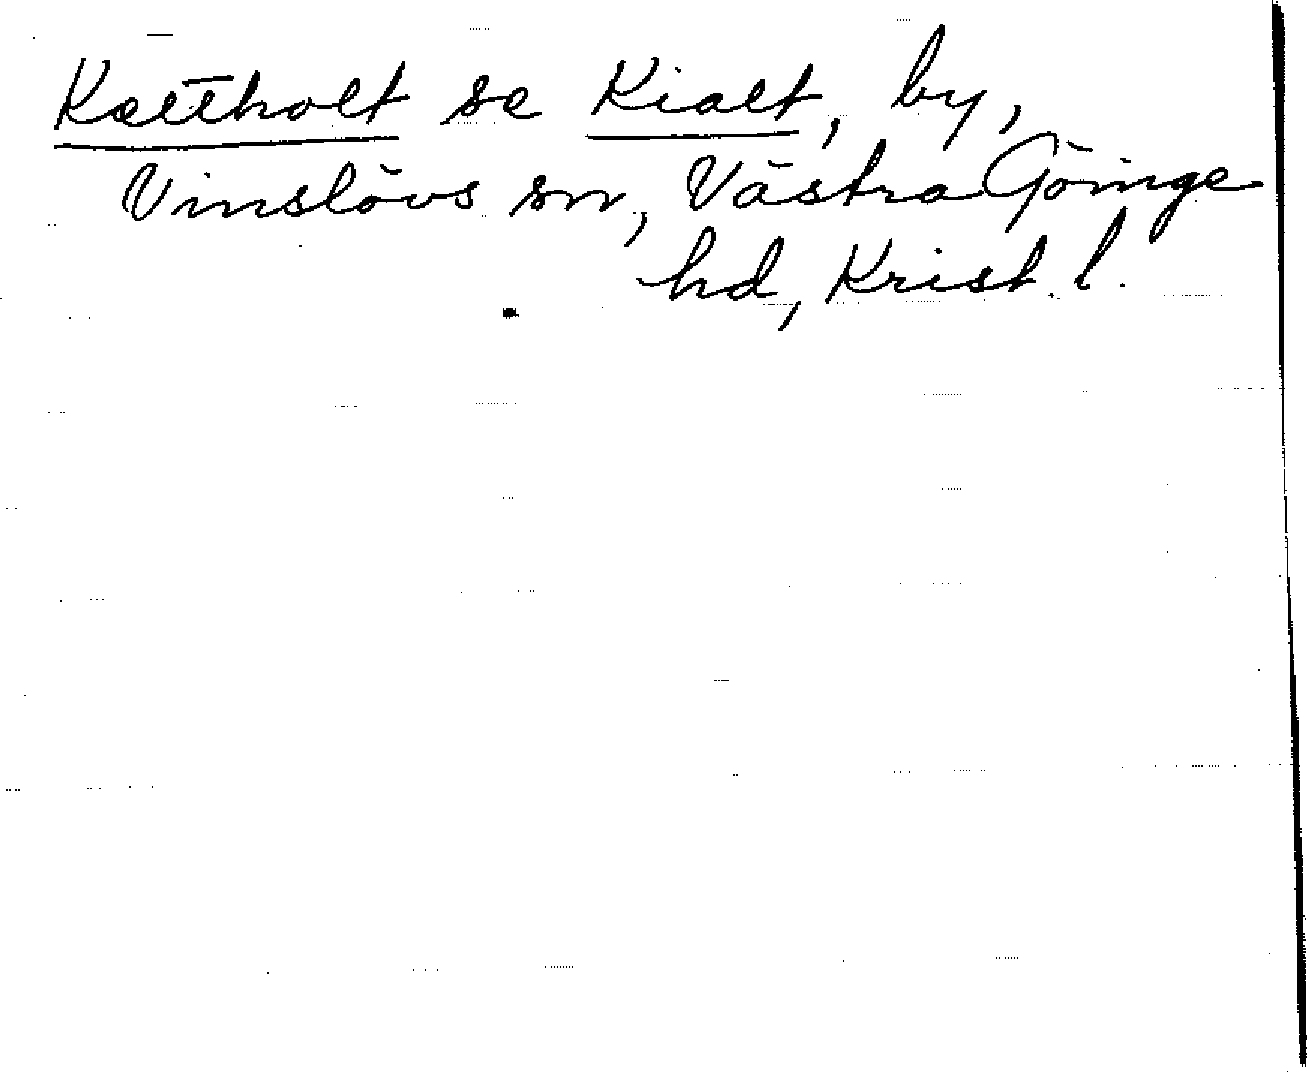 Kættholt se Kialt, by,
Vinslövs sn, Västra Göinge
hd, Krist. l.